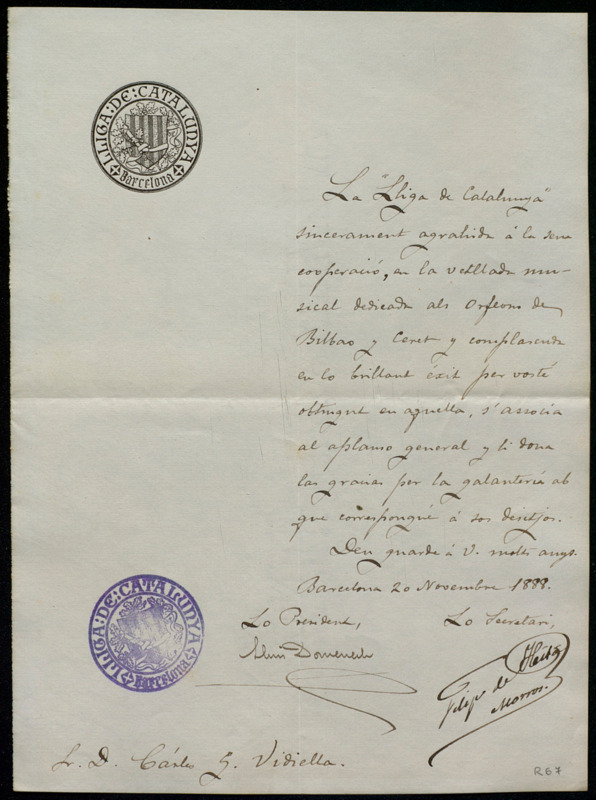 LLIGA·DE·CATALUNYA
Barcelona
La "Lliga de Catalunya"
sincerament agrahida á la seva
cooperació, en la vetllada mu-
sical dedicada als Orfeons de
Bilbao y Ceret y complascuda
en lo brillant éxit per vosté
obtingut en aquella, s'associa
al aplauso general y li dona
las gracias per la galantería ab
que correspongué á sos desitjos.
Deu guarde á V. molts anys.
Barcelona 20 Novembre 1888.
Lo President,
Lo Secretari,
Domenech
Felip de
Morros.
LLIGA·DE·CATALUNYA
Barcelona
Sr. D. Cárlos G. Vidiella.
R67